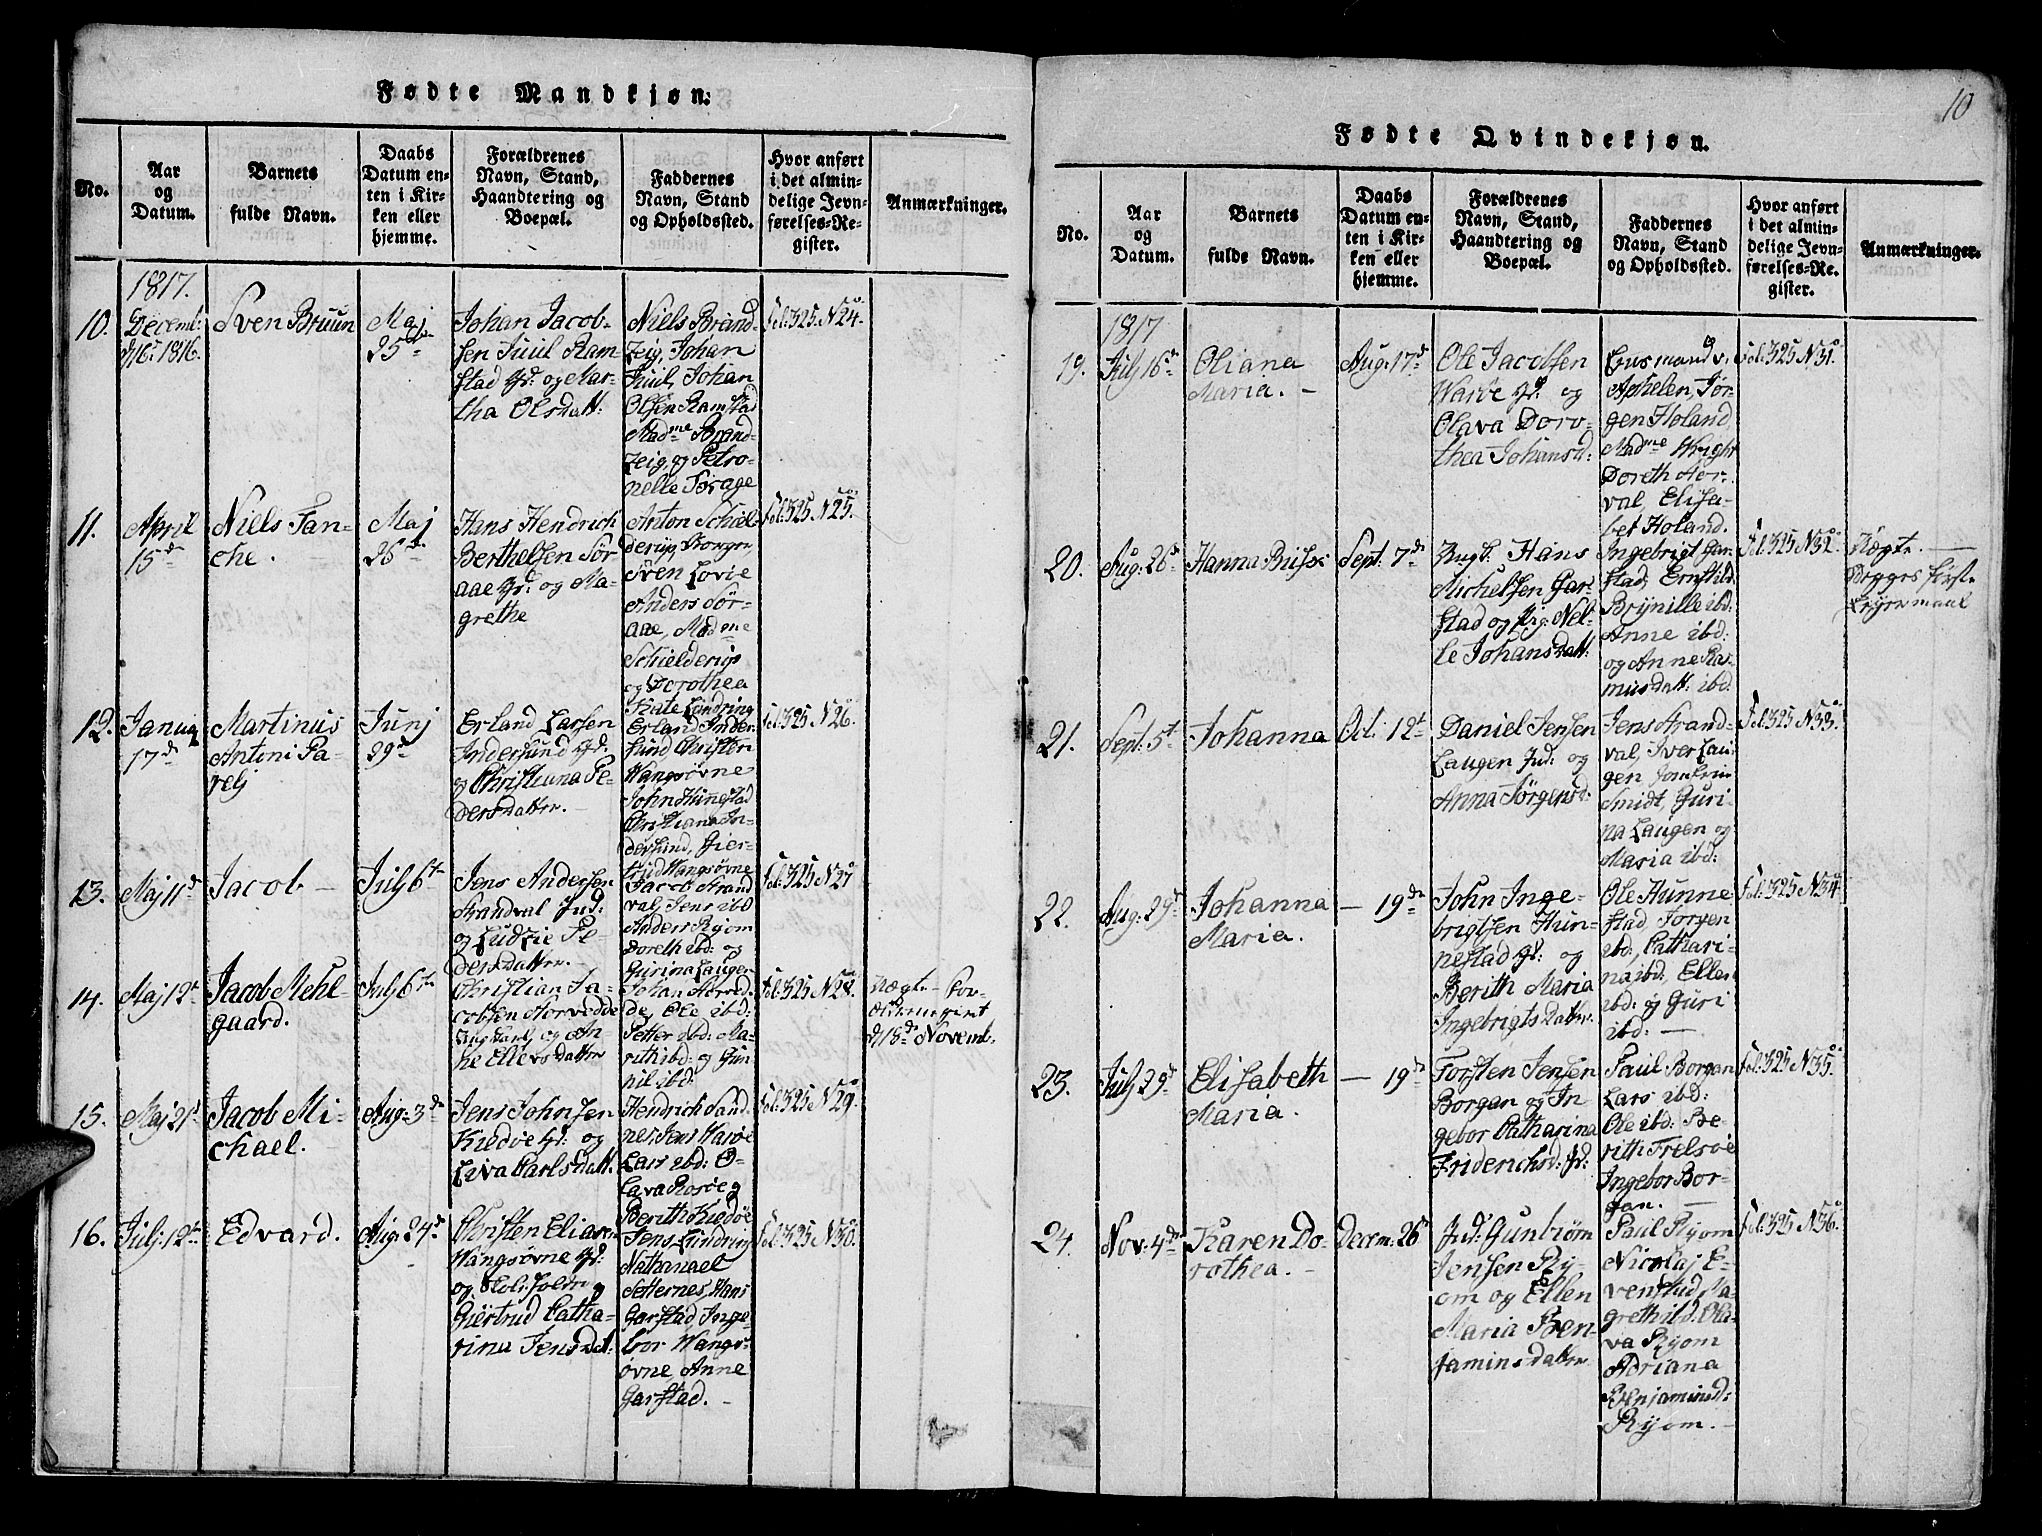 Fødte Mandkjøn.
No.
Aar
og
Datum.
Barnets
fulde Navn.
Daabs
Datum en-
ten i Kir-
ken eller
hjemme.
Forældrenes
Navn, Stand,
Haandtering og
Boepæl.
Faddernes
Navn, Stand
og Opholdssted.
Hvor anført
i det almin-
delige Jevn-
førelses-Re-
gister.
Anmærkninger.
1817.
10.
Decemb:
d 16d 1816.
Sven Bruun
Maj
25de
Johan Jacob-
sen Juul Ram
stad gd: og Mar-
tha Olsdatt:
Niels Brand-
zeig, Johan
Juul, Johan
Olsen Ramstad
Madme Brand-
zeig, og Petro-
nelle Forage
Fol: 325. No 24.
11.
April
15de
Niels Tan-
che.
Maj
26de
Hans Hendrich
Berthelsen Sør
aae gd: og Ma-
grethe
Anton Schiel-
derup
Sven Lovie
Anders Sør-
aae, Madme
Schielderup
og Dorothea
Fol: 325. No 25.
12.
Janua
17de
Martinus
Antoni Pa-
velj
Junj
29de
Erland Larsen
Indersund gd:
og Christiana Pe-
dersdatter.
Erland Inder
sund Christen
Wangsøvne
John Hunnestad
Christiana In-
dersund, Gier-
trud Wangsøvne
Fol: 325 No 26.
13.
Maj 11de
Jacob
Julj 6te
Jens Andersen
Strandval Jnd:
og Ludzie Pe-
dersdatter.
Jacob Strand
val, Jens ibd
Anders Ryom
Doreth ibd: og
Gurina Laugen
Fol: 325 No 27
14.
Maj 12te
Jacob Mehl-
gaard.
Julj 6te
Christian Ja-
cobsen Horvedde
og An-
ne Ellevsdatter
Johan Horved-
de, Ole ibd:
Petter ibd: Ma-
rith ibd: og Gun-
nil ibd:
Fol: 325 No 28.
d 15de Novemb.
15.
Maj 21d
Jacob Mi-
chael.
Aug: 3de
Jens Johnsen
Kiedøe gd: og
Liva Carlsdatt.
Hendrich Sand
nes, Jens Warøe
Lars ibd: O-
lava Rosøe og
Berith Kiedøe
Fol: 325 No 29.
16.
Julj: 12te
Edvard.
Aug: 24de
Christen Eliasen
Wangsøvne gd:
og
Giertrud Catha-
rina Jensdt:
Jens Lundring
Nathanael
Setternes, Hans
Garstad Inge-
bor Wangs-
øvne, Anne
Garstad.
Fol: 325 No 30.
10
Fødte Qvindekjøn.
No.
Aar
og
Datum.
Barnets
fulde Navn.
Daabs
Datum en-
ten i Kir-
ken eller
hjemme.
Forældrenes
Navn, Stand,
Haandtering og
Boepæl.
Faddernes
Navn, Stand
og Opholdssted.
Hvor anført
i det almin-
delige Jevn-
førelses-Re-
gister.
Anmærkninger.
1817
19.
Julj 16de
Oliana
Maria.
Aug: 17de
Ole Jacobsen
Warøe gd: og
Olava Doro-
thea Johansd:
Aphelen, Jør-
gen Holand,
Madme Wright
Doreth Hor-
val, Elisa-
bet Holand.
Fol: 325 No 31.
20.
Aug: 26de
Hanna
Sept: 7de
Ungk. Hans
Michelsen Gar-
stad og Pig: Nel-
le Johansdatt:
Ingebrigt Gar-
stad, Ernst ibd:
Brynille ibd:
Anne ibd:
og Anne Ras-
musdatt: ibd:
Fol: 325 No 32.
Uægte.
Begges første
Leyermaal
21.
Sept: 5te
Johanna
Oct: 12te
Daniel Jensen
Laugen Jnd: og
Anna Jørgensd:
Jens Strand-
val, Iver Lau-
gen
Smidt, Guri-
na Laugen og
Maria ibd:
Fol: 325 No 33.
22.
Aug: 29de
Johanna
Maria.
— 19de
John Inge-
brigtsen Hun-
nestad gd: og
Berith Maria
Ingebrigtsdatter.
Ole Hunne-
stad, Jørgen
ibd, Cathari-
na ibd, Ellen
ibd: og Guri
ibd:
Fol: 325 No 34.
23.
Julj 29de
Elisabeth
Maria.
— 19de
Torsten Jensen
Borgan og In-
gebor Catharina
Friderichsd: gd:
Paul Borgan
Lars ibd:
Ole ibd: Be-
rith Frelsøe
Ingebor Bor-
gan.
Fol: 325 No 35.
24.
Nov: 4de
Karen Do-
rothea.
Decem: 26de
Jnd: Gunbiøm
Jensen Ry-
om og Ellen
Maria Ben-
jaminsdatter
Paul Ryom
Nicolaj E-
venstad, Ma-
greth ibd. Ola-
va Ryom
Adriana
Benjaminsd:
Ryom.
Fol: 325 No 36.